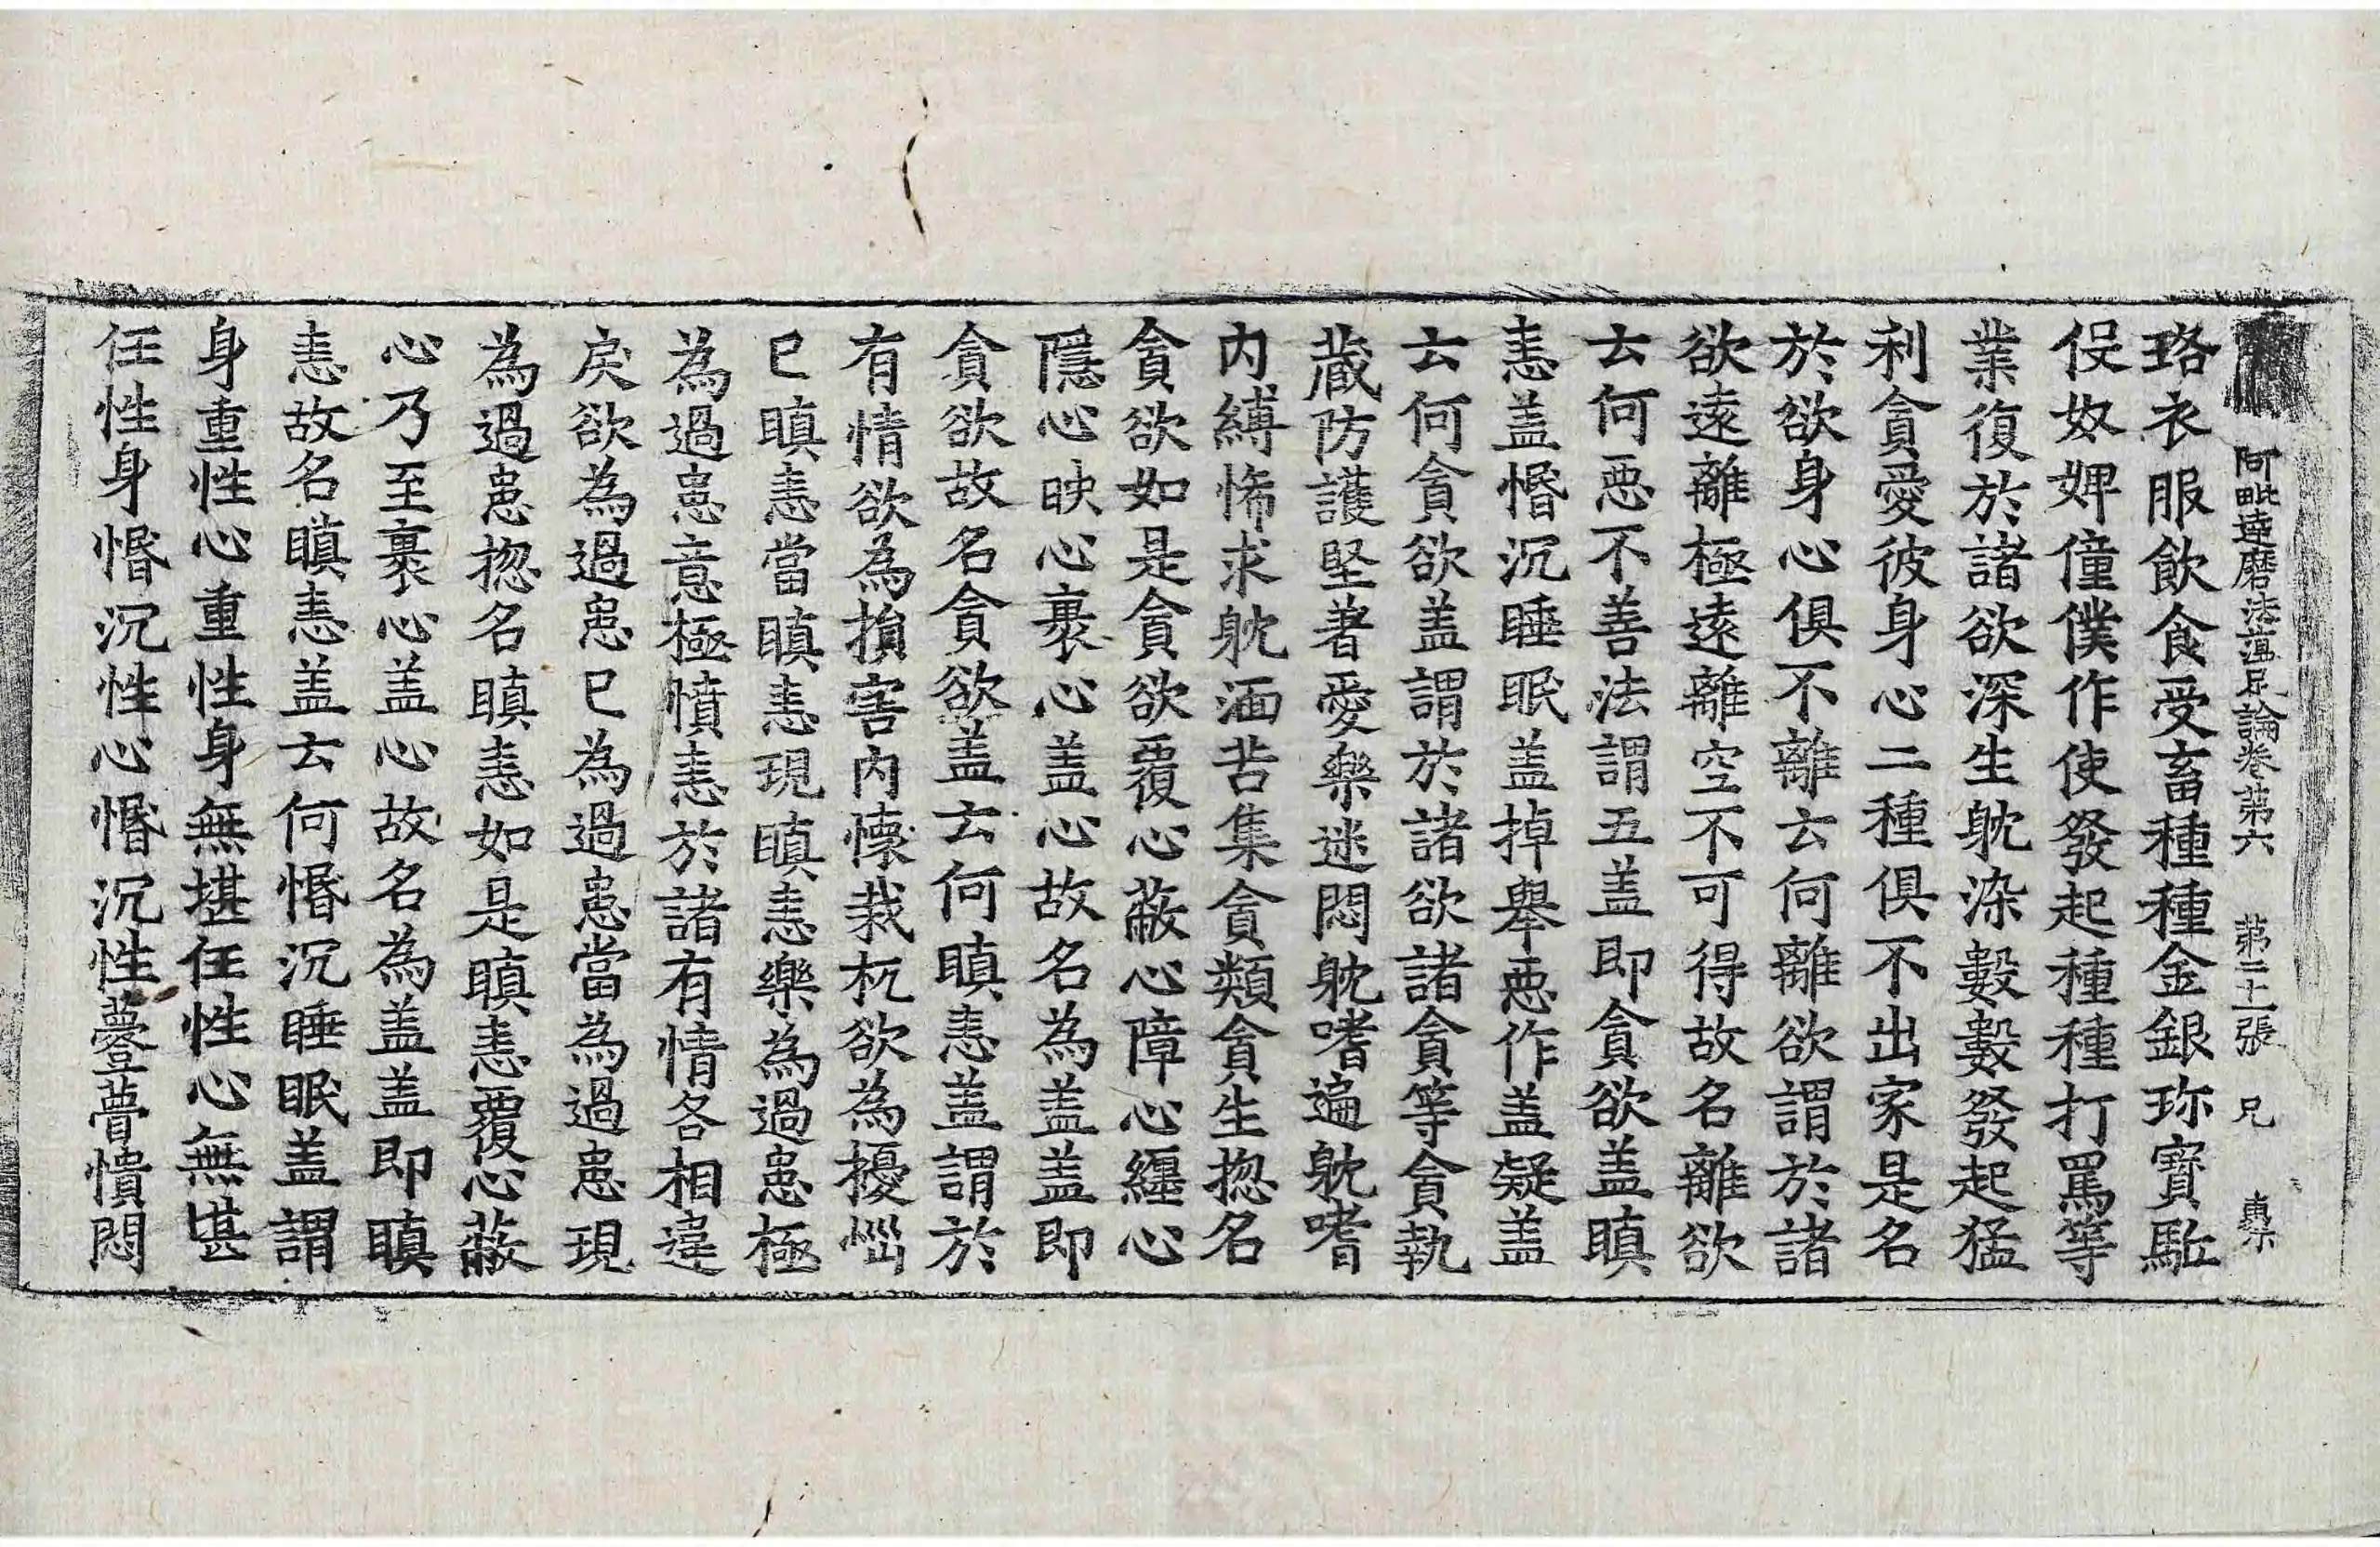 阿毗達磨法蘊足論卷第六　第二十一張　兄
珞衣服飲食受畜種種金銀珎寶駈
伇奴婢僮僕作使發起種種打罵等
業復於諸欲深生躭染數數發起猛
利貪愛彼身心二種俱不出家是名
於欲身心俱不離云何離欲謂於諸
欲遠離極遠離空不可得故名離欲
云何惡不善法謂五盖即貪欲盖瞋
恚盖惛沉睡眠盖掉舉惡作盖疑盖
云何貪欲盖謂於諸欲諸貪等貪執
藏防護堅著愛樂迷悶躭嗜遍躭嗜
内縛悕求躭湎苦集貪類貪生揔名
貪欲如是貪欲覆心蔽心障心纏心
隱心映心裹心盖心故名為盖盖即
貪欲故名貪欲盖云何瞋恚盖謂於
有情欲為損害内懷栽杌欲為擾惱
已瞋恚當瞋恚現瞋恚樂為過患極
為過患意極憤恚於諸有情各相違
戾欲為過患已為過患當為過患現
為過患揔名瞋恚如是瞋恚覆心蔽
心乃至裹心盖心故名為盖盖即瞋
恚故名瞋恚盖云何惛沉睡眠盖謂
身重性心重性身無堪任性心無堪
任性身惛沉性心惛沉性䔲瞢憒悶